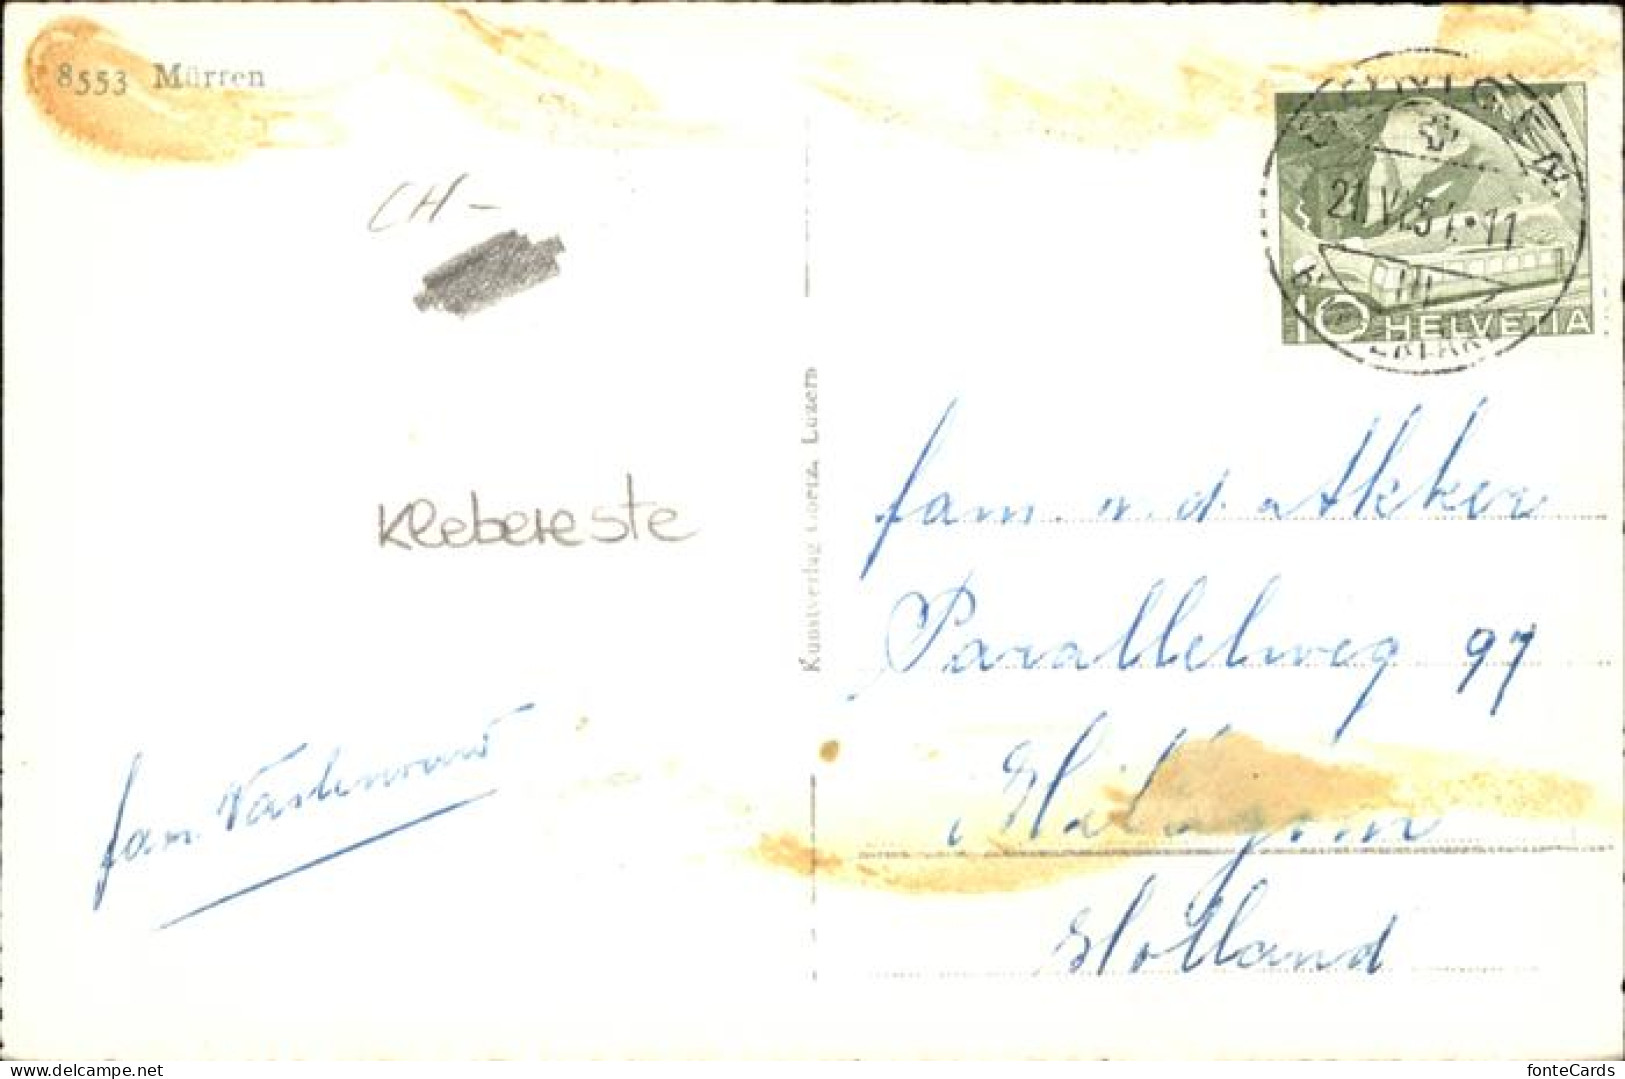 8553 Mürren
CH-
Klebereste
fam.
Kunstverlag Goetz, Luzern
BÖNIGEN
21.VI.51.-11
10 HELVETIA
fam. v. d. Akker
Parallelweg 97
Hillegom
Holland
delcampe.net
fonteCards